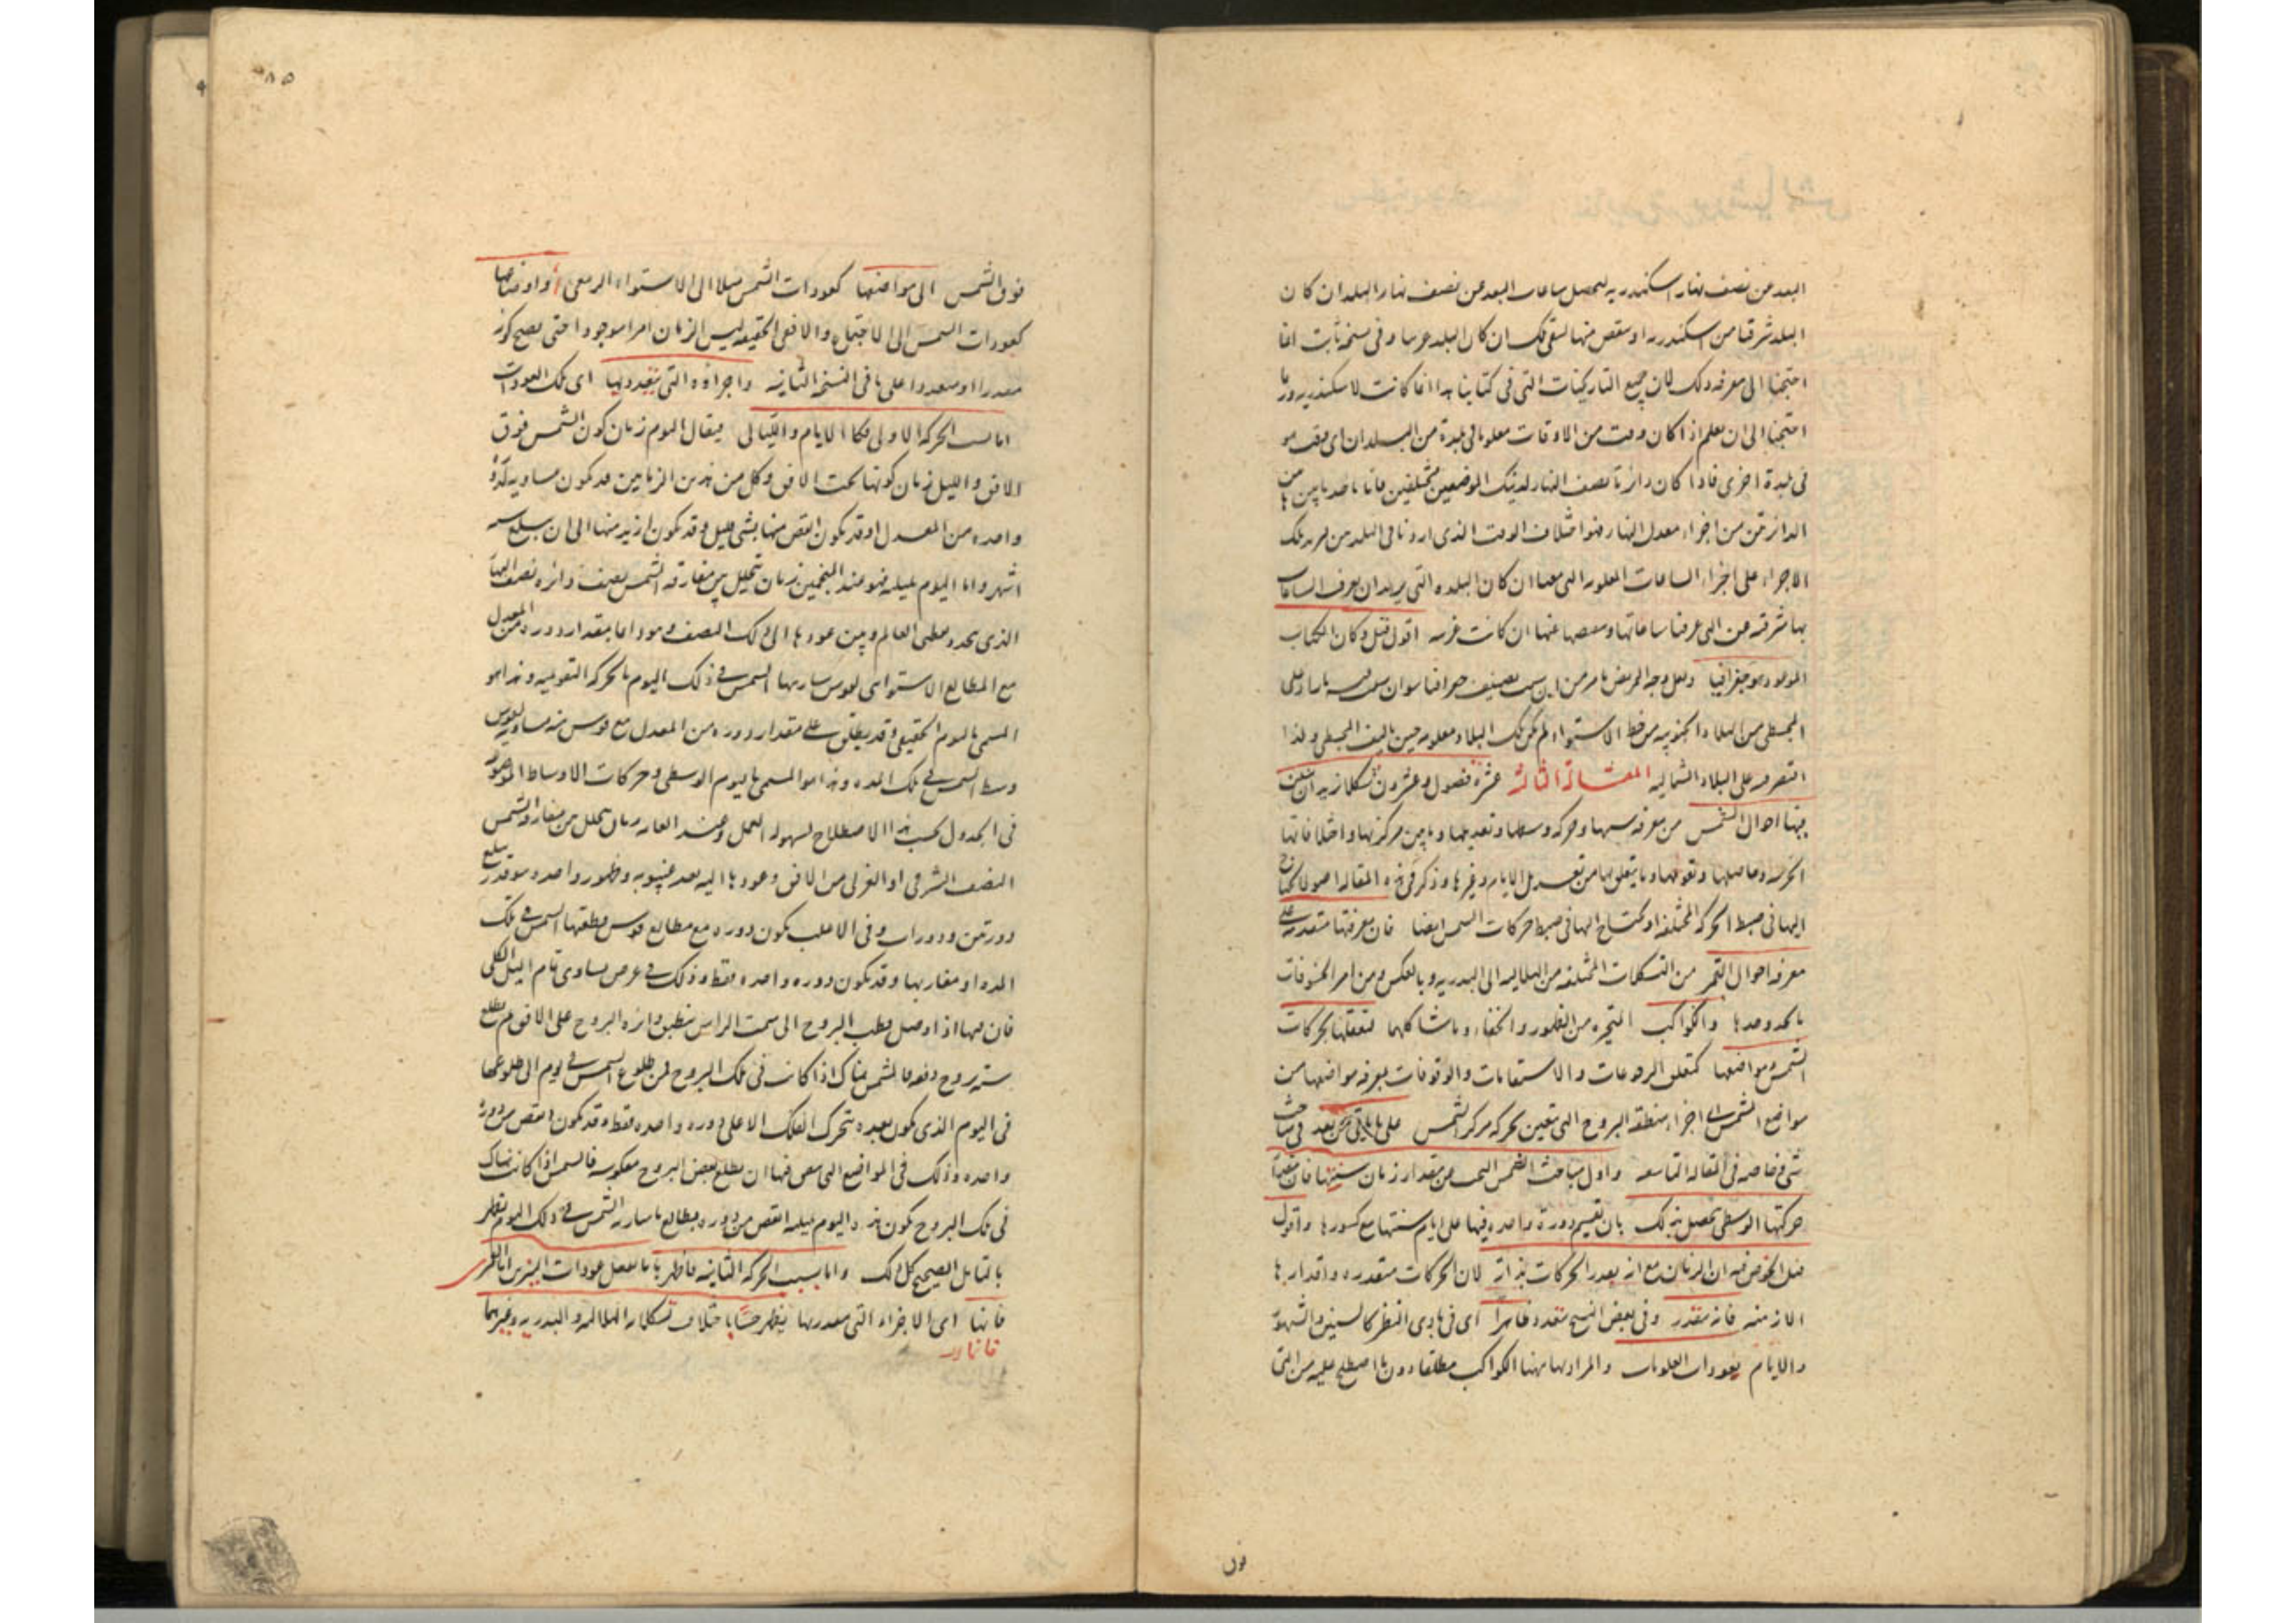 البعد من نصف نهار اسكندريه ليحصل ساعات البعد عن نصف نهار البلد ان كان
البلد شرقيا من اسكندريه او ينقص منها ليبقى تلك ان كان البلد غربيا وفى نسخه ثابت انما
احتجنا الى معرفه ذلك لان جميع التاريخات التى فى كتابنا هذا انما كانت لاسكندريه وربما
احتجنا الى ان نعلم اذا كان وقت من الاوقات معلوما فى بلدة من البلدان اى وقت هو
فى بلدة اخرى فاذا كان دائرتا نصف النهار لذينك الموضعين مختلفين فانا ناخذ ما بين
الدائرتين من اجزاء معدل النهار فهو اختلاف الوقت الذى اردنا فى البلدين
الاجزاء على اجزاء الساعات المعلومه التى معنا ان كان البلده التى يريد ان يعرف الساعات
بها شرقيه عن التى عرفنا ساعاتها وننقصها عنها ان كانت غربيه اقول قيل وكان الكتاب
الموعود هو جغرافيا ولعل وجه
المجسطى من البلاد الجنوبيه من خط الاستواء لم يكن تلك البلاد معلومه حين الف المجسطى ولذا
اقتصر فيه على البلاد الشماليه المقالة الثالثة عشرة فصول وعشرون شكلا نريد ان نبين
فيها احوال الشمس من معرفه سنتها وحركه وسطها وتعديلها وما بين مركزيها واختلافاتها
الجزئيه وحاصلها وتقويمها وما يتعلق بها من تعديل الايام وغيرها وذكر فى هذه المقاله اصولا يحتاج
اليها فى ضبط الحركه المختلفه او يحتاج اليها فى ضبط حركات الشمس ايضا فان معرفتها متقدمه على
معرفه احوال القمر من التشكلات المختلفه من الهلاليه الى البدريه وبالعكس ومن امر الخسوفات
بالحدوحدها والكواكب المتحيره من الظهور والخفاء وما شاكلهما لتعلقها بحركات
الشمس ومواضعها كتعلق الرجوعات والاستقامات والوقوفات بمعرفه مواضعها من
مواضع الشمس اى اجزاء منطقه البروج التى تتعين بحركه مركز الشمس على ما ياتى من بعد فى مباحث
شتى وخاصه فى المقاله التاسعه واول مباحث الشمس البحث عن مقدار زمان سنتها فان
حركتها الوسطى تحصل بذلك بان نقسم دورة واحده فيها على ايام سنتها مع كسورها واقول
قبل الخوض فيه ان الزمان مع انه يقدر الحركات بذاته لان الحركات متقدره واقدارها
الازمنه فانه متقدر وفى بعض النسخ متعدد ظاهرا اى فى بادى النظر كالسنين والشهور
والايام بعودات العلويات والمراد بها ههنا الكواكب مطلقا دون ما اصطلح عليه من التى
فون
٨٥
فوق الشمس الى مواضعها كعودات الشمس مثلا الى الاستواء الربيعى او اوضاعها
كعودات الشمس الى الاجتماع والافق الحقيقيه ليس الزمان امرا موجودا حتى يصح كونه
مقدرا او متعددا على ما فى النسخه الثانيه واجزاؤه التى يتقدر بها اى تلك العودات
اما بسبب الحركه الاولى فكالايام والليالى فيقال اليوم زمان كون الشمس فوق
الافق والليل زمان كونها تحت الافق وكل من هذين الزمانين قد يكون مساويه لدورة
واحده من المعدل وقد يكون انقص منها بشى قليل وقد يكون ازيد منها الى ان يبلغ سته
اشهر واما اليوم بليله فهو عند المنجمين زمان يتخلل بين مفارقه الشمس نصف دائره نصف النهار
الذى يحده قطبى العالم وبين عودها الى ذلك النصف وهو دائما بمقدار دوره من المعدل
مع المطالع الاستوائى لقوس سارتها الشمس فى ذلك اليوم بالحركه التقويميه وهذا هو
المسمى باليوم الحقيقى وقد يطلق على مقدار دوره من المعدل مع قوس منه مساويه لقوس
وسط الشمس فى تلك المده وهذا هو المسمى باليوم الوسطى وحركات الاوساط الموضوعه
فى الجدول بحسب هذا الاصطلاح لسهوله العمل وعند العامه زمان يتخلل من مفارقه الشمس
النصف الشرقى او الغربى من الافق وعودها اليه بعد غيبوبه وظهور واحد وهو قد يبلغ
دورتين ودورات وفى الاغلب يكون دوره مع مطالع قوس قطعتها الشمس فى تلك
المده او مقاربها وقد يكون دوره واحده فقط وذلك فى عرض يساوى تمام الميل الكلى
فان فيها اذا وصل قطب البروج الى سمت الراس ينطبق دائره البروج على الافق ثم يطلع
سته بروج دفعه فالشمس هناك اذا كانت فى تلك البروج فمن طلوع الشمس فى يوم الى طلوعها
فى اليوم الذى يكون بعده يتحرك الفلك الاعلى دوره واحده فقط وقد يكون انقص من دوره
واحده وذلك فى المواضع التى يتفق فيها ان يطلع بعض البروج معكوسه فالشمس اذا كانت هناك
فى تلك البروج يكون هذه اليوم بليله انقص من دوره بمطالع ما سارته الشمس فى ذلك اليوم يظهر
بالتامل الصحيح كل ذلك واما بسبب الحركه الثانيه فاظهرها بالفعل عودات النيرين اما القمرى
فانها اى الاجزاء التى يتقدر بها يظهر حسا باختلاف تشكلاته الهلاليه والبدريه وغيرهما